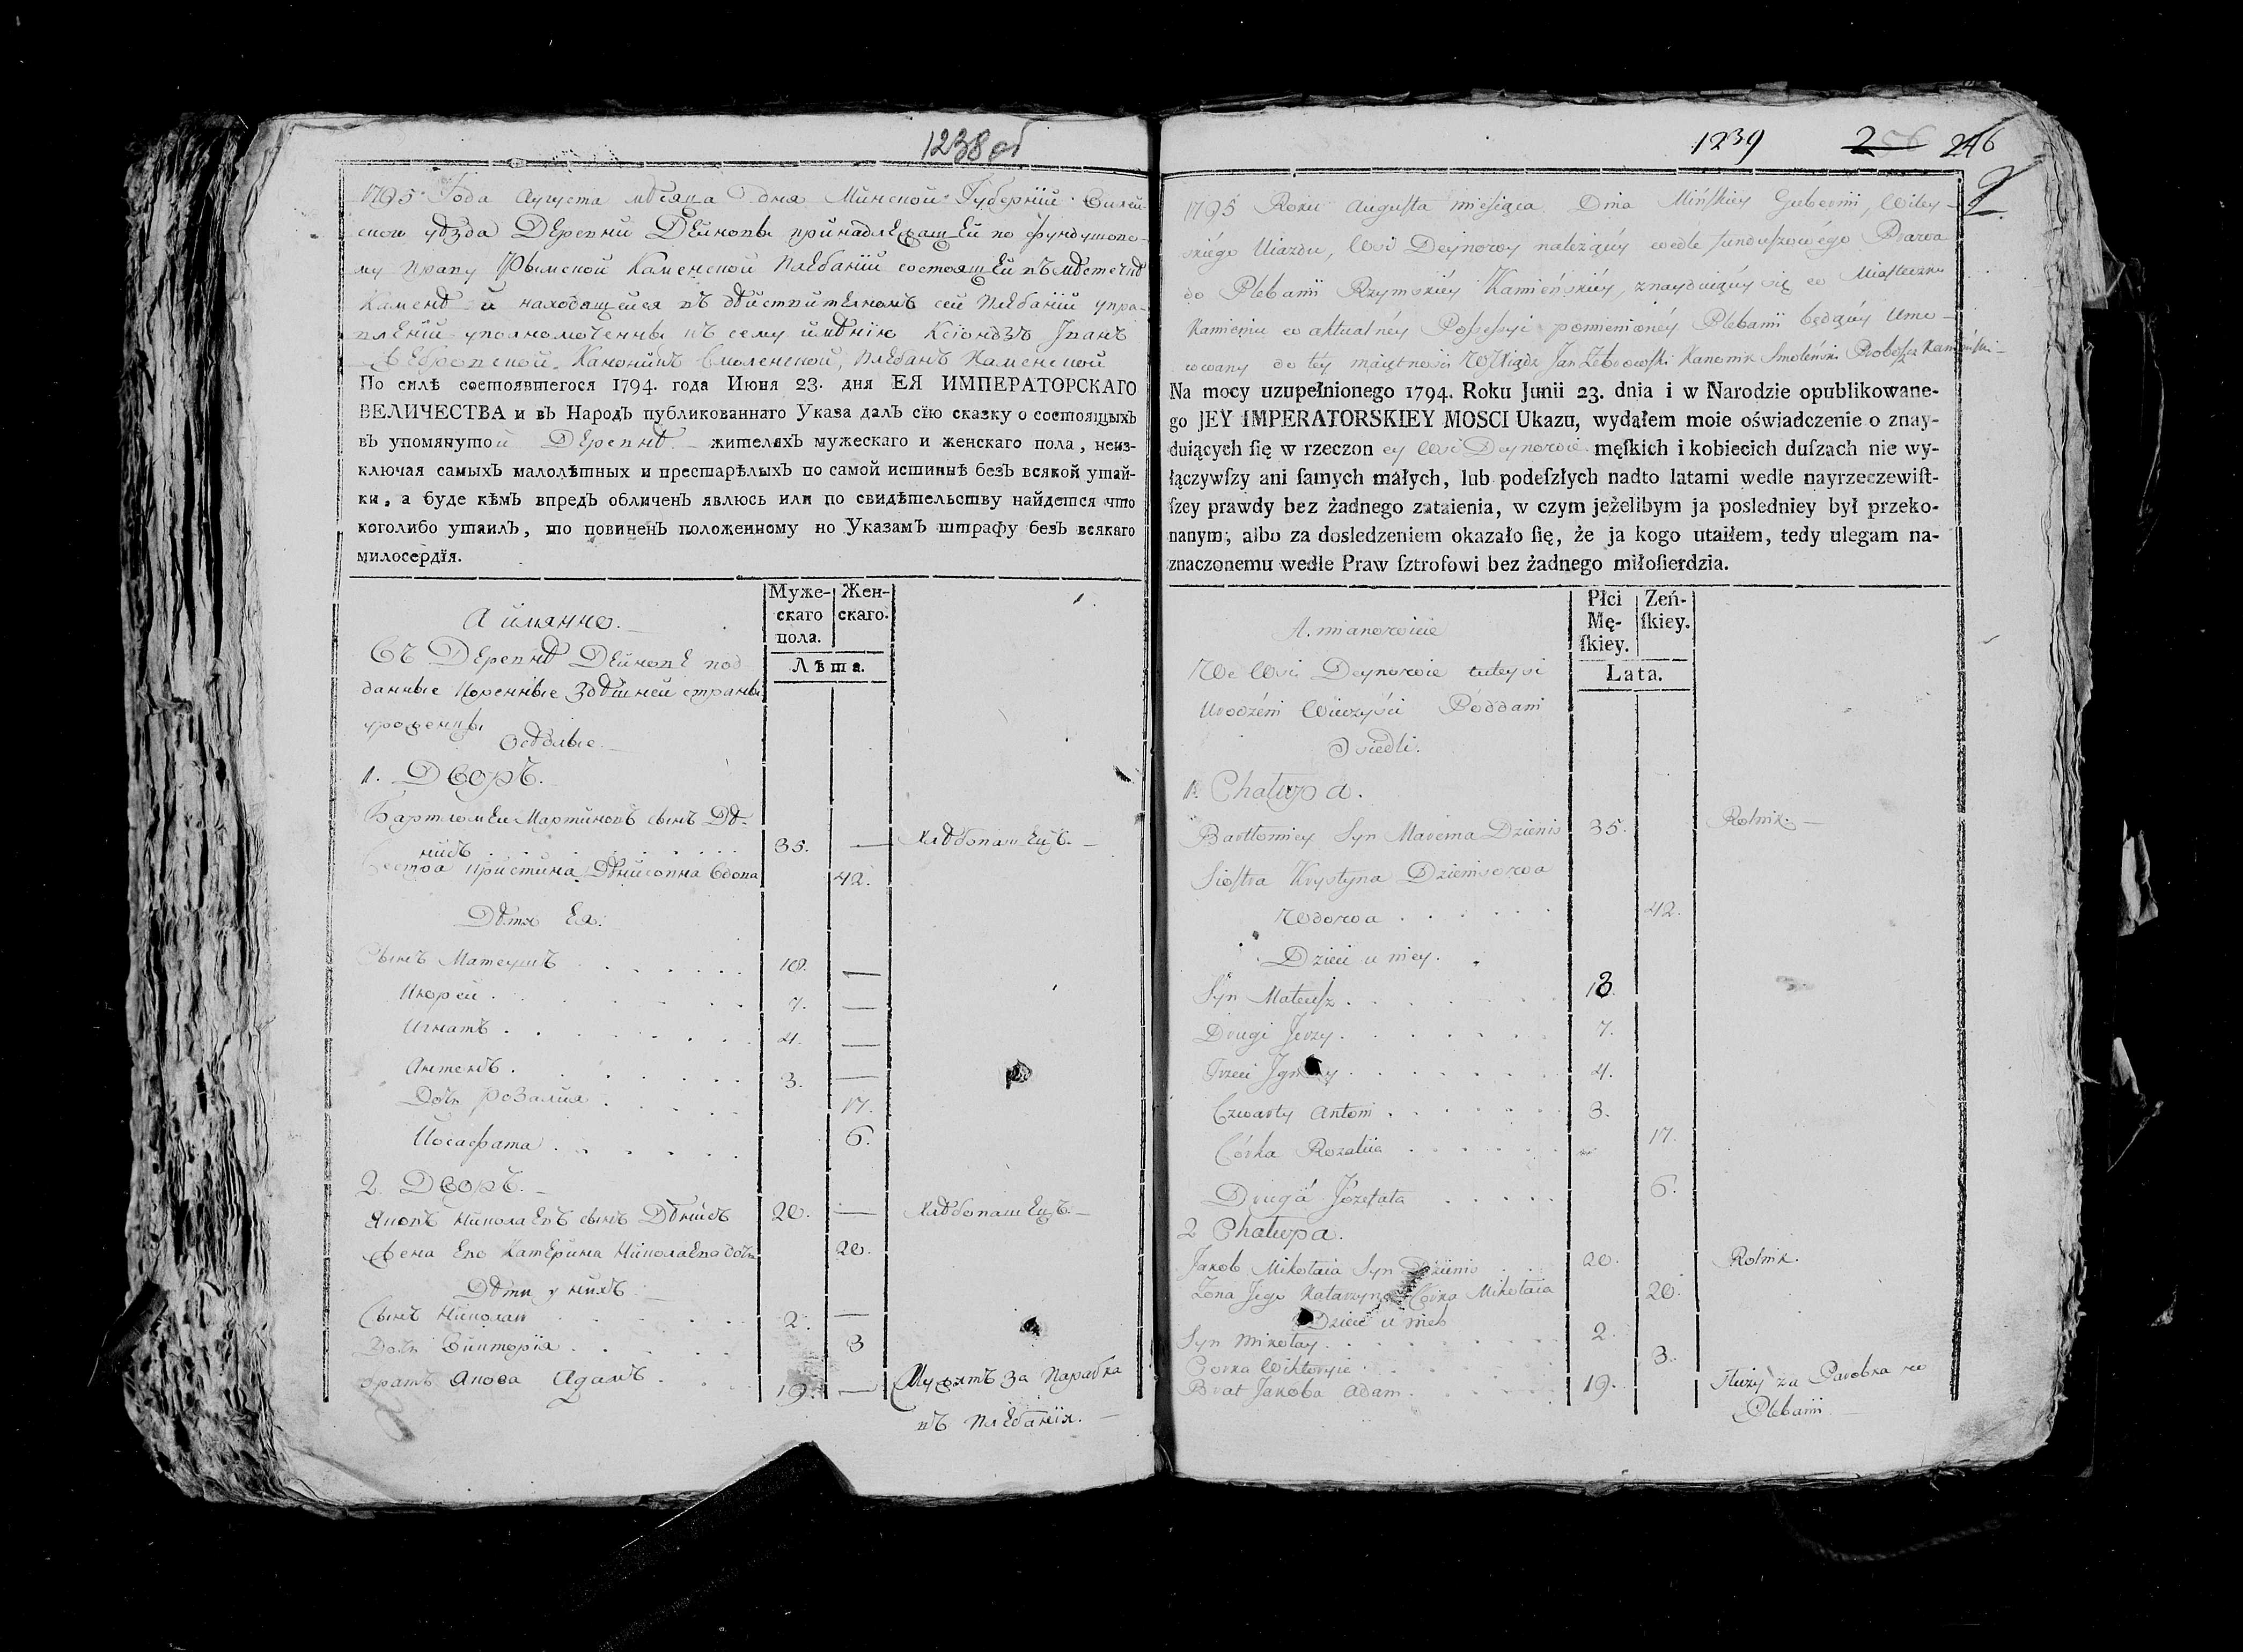 1238 об
1795 Года Августа мѣсяца дня Минской Губерніи Вилей-
скаго уѣзда Деревни Дейновы принадлежащей по фундушово-
му праву Рымской Каменской Плебаніи состоящей въ мѣстечкѣ
Каменѣ и находящейся въ дѣйствителномъ сей Плебаніи упра-
вленіи уполномоченны къ сему имѣнію Ксіондзъ Иванъ
Жебровской Каноникъ Смоленской, Плебанъ Каменской
По силѣ состоявшегося 1794. года Июня 23. дня ЕЯ ИМПЕРАТОРСКАГО
ВЕЛИЧЕСТВА и въ Народъ публикованнаго Указа далъ сїю сказку о состоящыхъ
въ упомянутой Деревнѣ жителяхъ мужескаго и женскаго пола, неиз-
ключая самыхъ малолѣтных и престарѣлыхъ по самой истиннѣ безъ всякой утай-
ки, а буде кѣмъ впредъ обличенъ явлюсь или по свидѣтельству найдется что
коголибо утаилъ, то повиненъ положенному по Указамъ штрафу безъ всякаго
милосердїя.
А имянно.
Муже-
скаго
пола.
Жен-
скаго.
Лѣта.
Въ Деревнѣ Дейновѣ под
данные Коренные Здѣшней страны
уроженцы
Осѣдлые.
1. Дворъ.
Бартломеи Мартиновъ сынъ Дѣ-
нисъ 35. — Хлѣбопашецъ. —
Сестра Кристина Дѣнисовна Вдова 42.
Дѣти Ея:
Сынъ Матеушъ 18. —
Юрей 7. —
Игнатъ 4. —
Антонъ 3. —
Дочь Розалия 17.
Иосафата 6.
2. Дворъ.
Яковъ Николаевъ сынъ Дѣнисъ 20. — Хлѣбопашецъ. —
Жена Ево Катерина Николаева дочь 20.
Дѣти у нихъ
Сынъ Николаи 2. —
Дочь Викторія 3
братъ Якова Адамъ 19. — Служитъ за Парабка
въ Плебаніи. —
1239 256 246
2
1795 Roku Augusta miesiąca Dnia Mińskiey Gubernii, Wiley-
skiégo Uiazdu, Wsi Deynowy należącéy wedle funduszowégo Prawa
do Plebanii Rzymskiéy Kamieńskiéy, znayduiącéy się w Miasteczku
Kamieniu w aktualnéy Possessyi pomienionéy Plebanii będący Umo-
cowany do téy maiętności W. Xiądz Jan Żebrowski Kanonik Smoleński Proboszcz Kamieński —
Na mocy uzupełnionego 1794. Roku Junii 23. dnia i w Narodzie opublikowane-
go JEY IMPERATORSKIEY MOSCI Ukazu, wydałem moie oświadczenie o znay-
duiących ſię w rzeczon ey Wsi Deynowie męſkich i kobiecich duſzach nie wy-
łączywſzy ani ſamych małych, lub podeſzłych nadto latami wedle nayrzeczewiſt-
ſzey prawdy bez żadnego zataienia, w czym jeżelibym ja posledniey był przeko-
nanym, albo za dosledzeniem okazało ſię, że ja kogo utaiłem, tedy ulegam na-
znaczonemu wedle Praw ſztrofowi bez żadnego miłoſierdzia.
A. mianowicie
Płci
Mę-
ſkiey.
Zeń-
ſkiey.
Lata.
We Wsi Deynowie tuteysi
Urodzeni Wieczyści Poddani
Osiedli.
1. Chałupa.
Bartłomiey Syn Marcina Dzienis 35. Rolnik. —
Siostra Krystyna Dzienisowa
Wdowa 42.
Dzieci u niey.
Syn Mateuſz 18.
Drugi Jerzy 7.
Trzeci Ignacy 4.
Czwarty Antoni 3.
Córka Rozalija 17.
Druga Józefata 6.
2 Chałupa.
Jakob Mikołaia Syn Dzienis 20. Rolnik.
Żona Jego Katarzyna Córka Mikołaia 20.
Dzieci u nich
Syn Mikołay 2.
Corka Wiktoryia 3.
Brat Jakoba Adam 19. Służy za Parobka w
Plebanii —